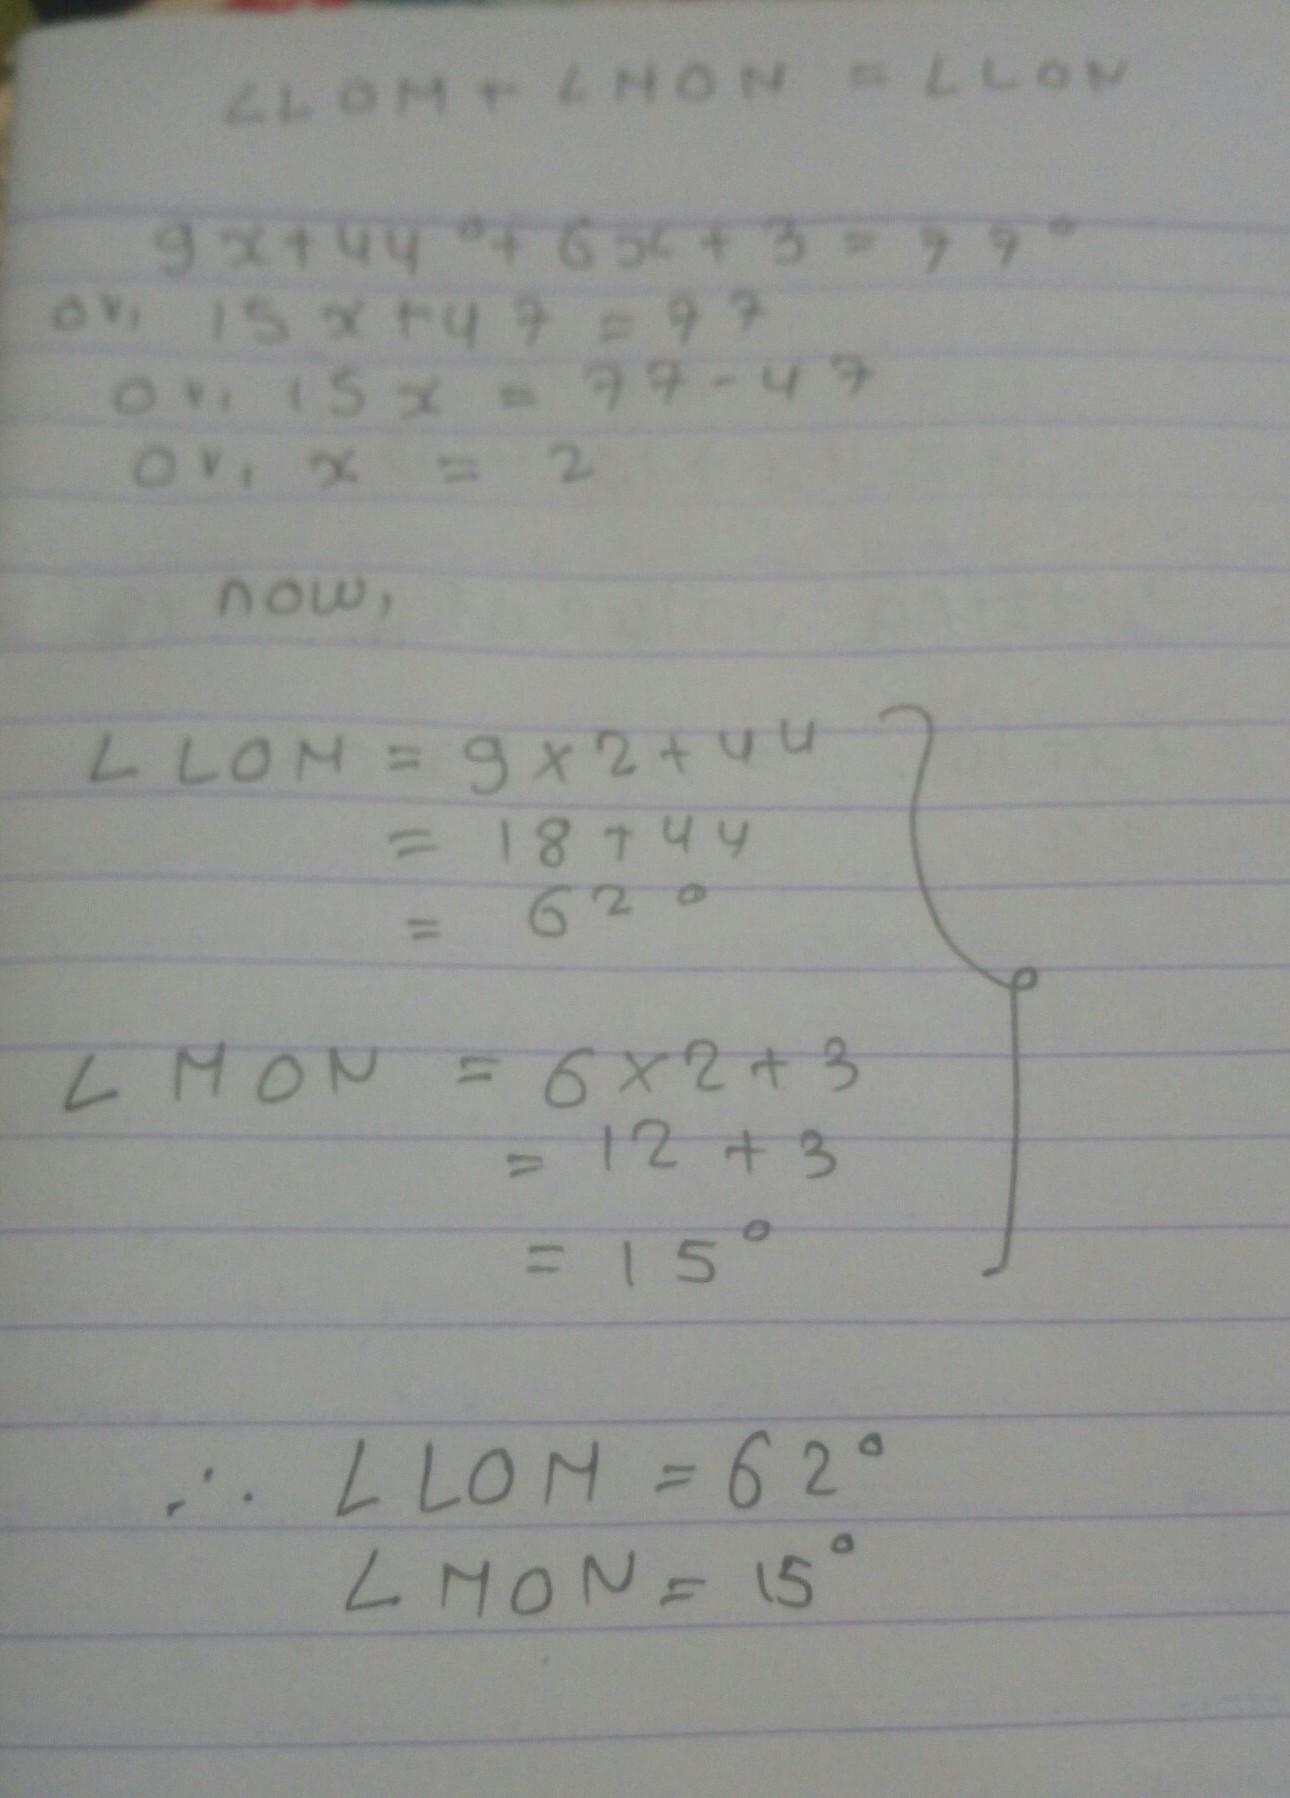 ∠LOM + ∠MON = ∠LON
9x + 44° + 6x + 3 = 77°
or, 15x + 47 = 77
or, 15x = 77 - 47
or, x = 2
now,
∠LOM = 9 × 2 + 44
= 18 + 44
= 62°
∠MON = 6 × 2 + 3
= 12 + 3
= 15°
∴ ∠LOM = 62°
∠MON = 15°